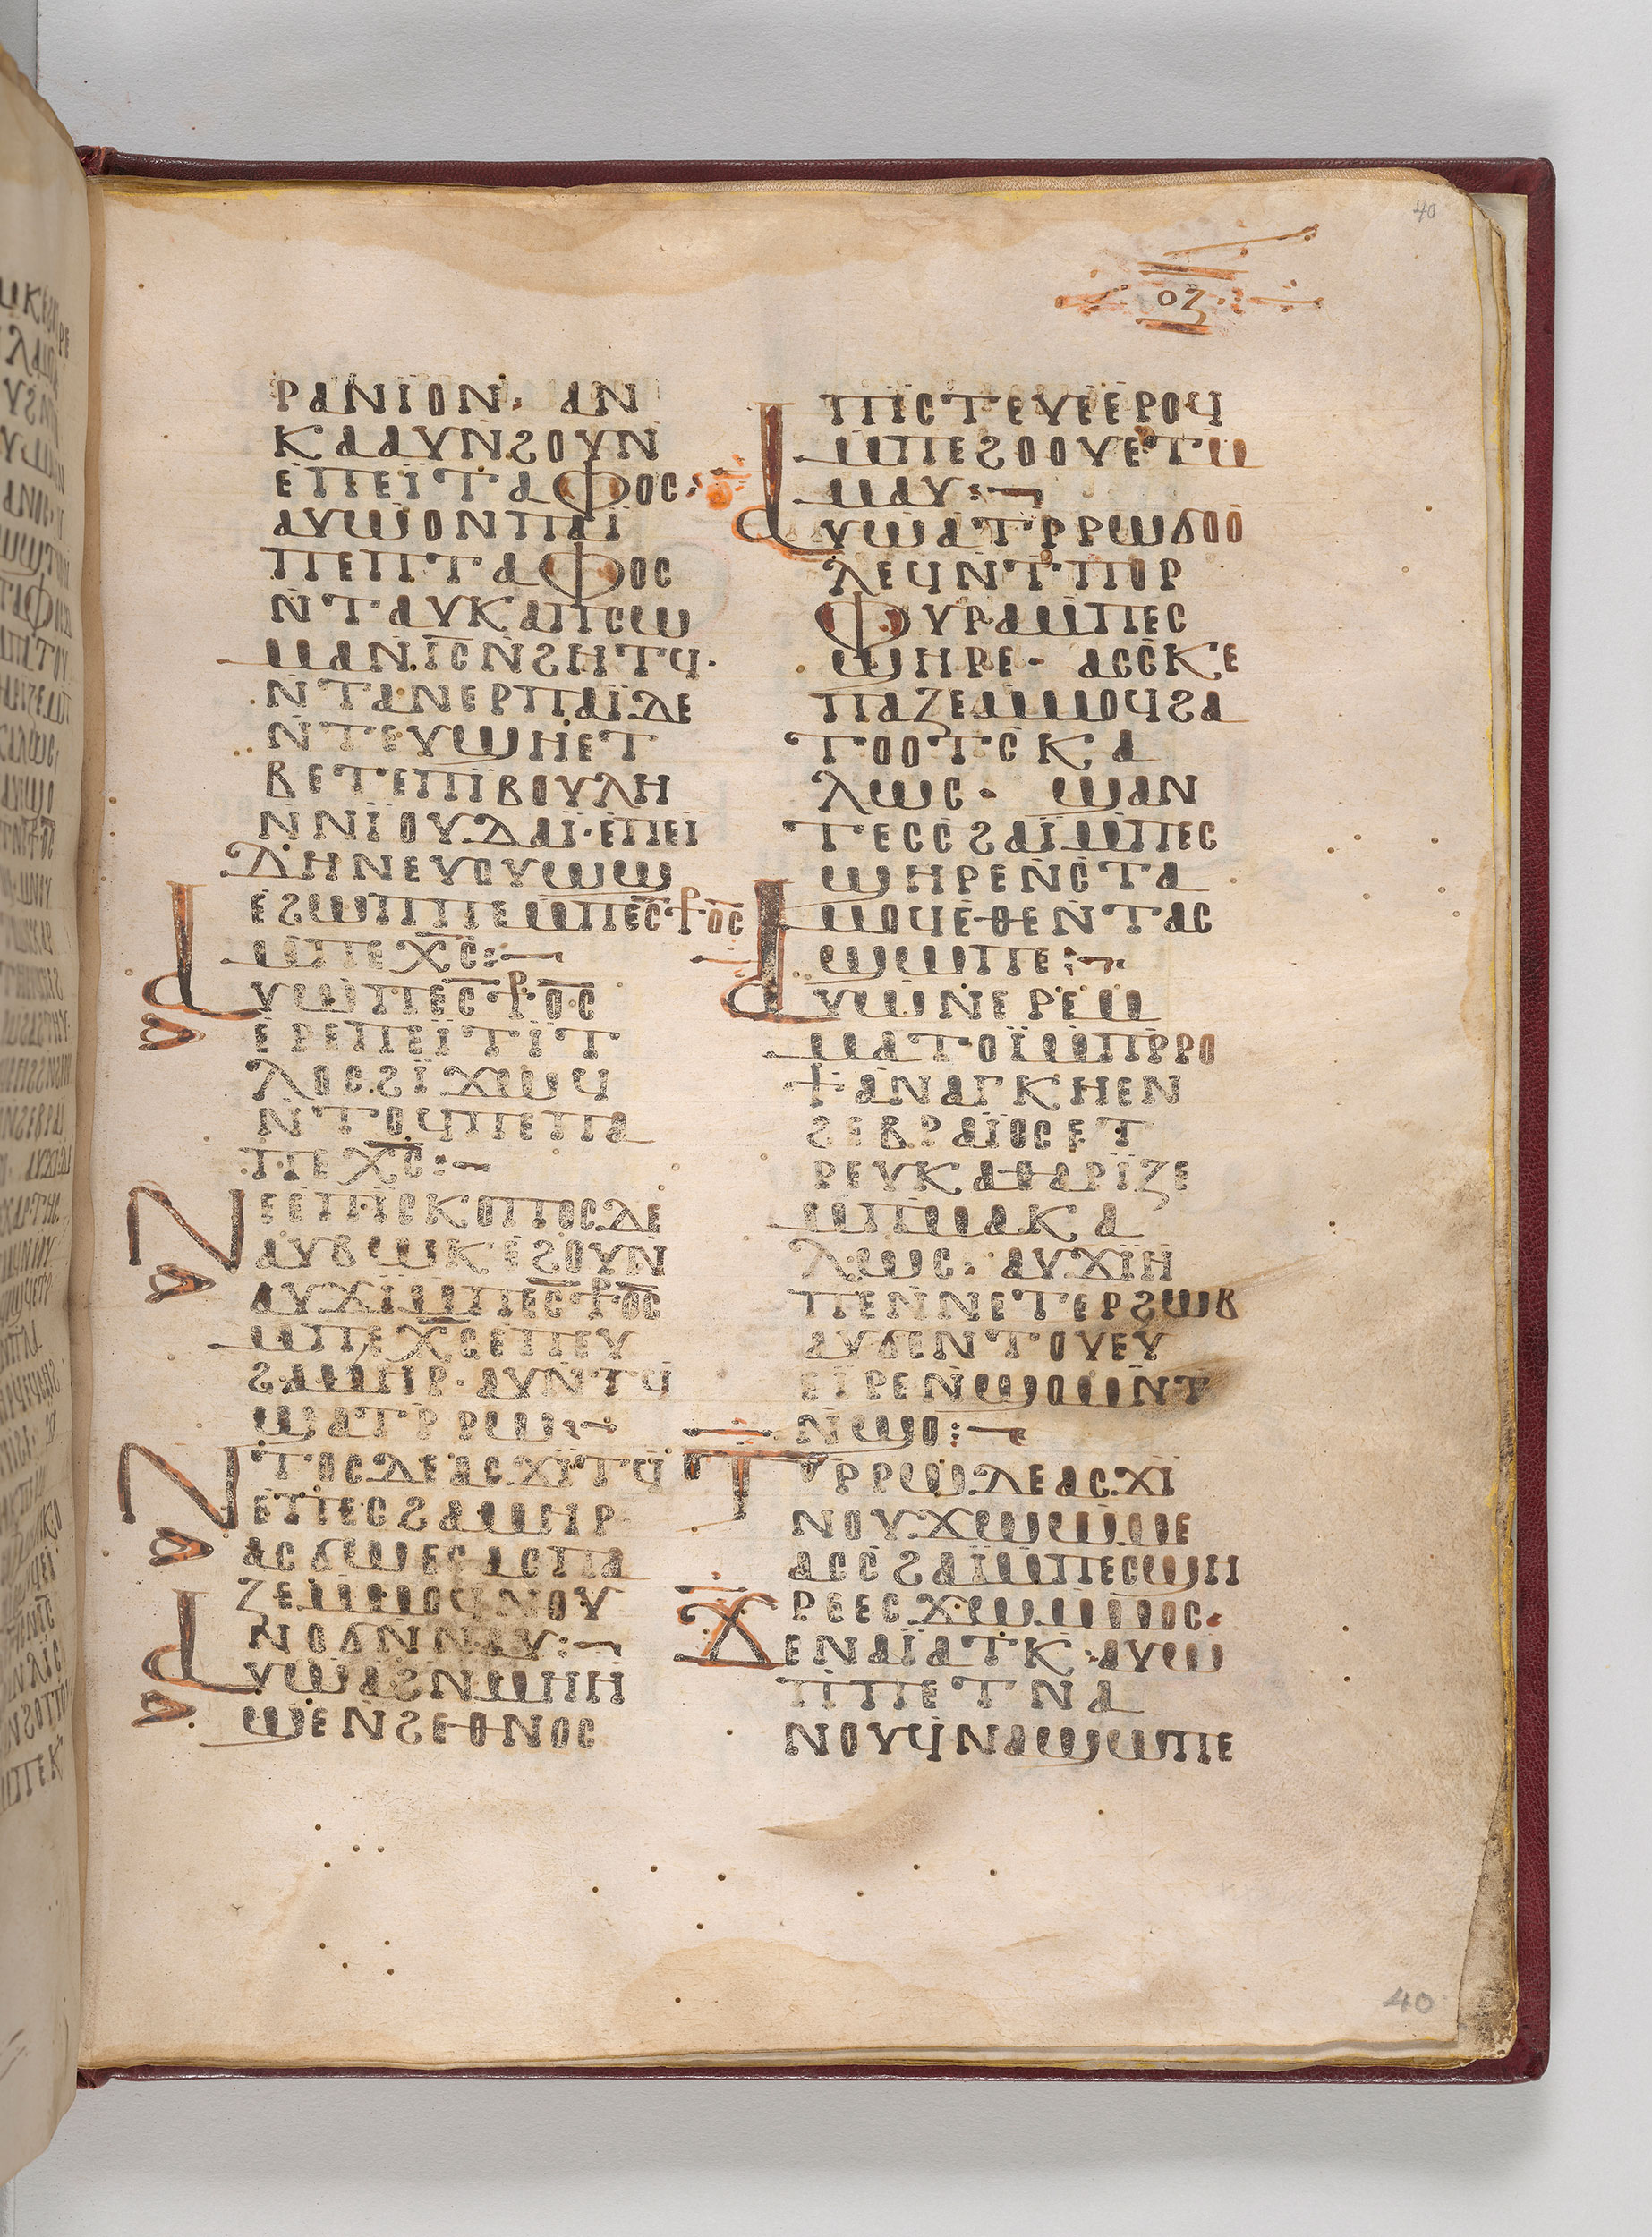 40
ⲟⲍ
ⲣⲁⲛⲓⲟⲛ· ⲁⲛ
ⲕⲁⲁⲩⲛϩⲟⲩⲛ
ⲉⲡⲉⲓⲧⲁⲫⲟⲥ·
ⲁⲩⲱⲟⲛⲡⲁⲓ
ⲡⲉⲡⲧⲁⲫⲟⲥ
ⲛⲧⲁⲩⲕⲁⲡⲥⲱ
ⲙⲁⲛⲓ̅ⲥ̅ⲛϩⲏⲧϥ·
ⲛⲧⲁⲛⲉⲣⲡⲁⲓⲇⲉ
ⲛⲧⲉⲩϣⲏⲉⲧ
ⲃⲉⲧⲉⲡⲓⲃⲟⲩⲗⲏ
ⲛⲛⲓⲟⲩⲇⲁⲓ·ⲉⲡⲉⲓ
ⲇⲏⲛⲉⲩⲟⲩⲱϣ
ⲉϩⲱⲡⲡⲉⲙⲡⲉⲥ̅ⳁⲟ̅ⲥ̅
ⲙⲡⲉⲭ̅ⲥ̅:⁓
ⲁⲩⲱⲡⲉⲥ̅ⳁⲟ̅ⲥ̅
ⲉⲣⲉⲡⲉⲓⲧⲓⲧ
ⲗⲟⲥϩⲓϫⲱϥ
ⲛⲧⲟϥⲡⲉⲡⲁ
ⲡⲉⲭ̅ⲥ̅:⁓
ⲛⲉⲉⲡⲓⲥⲕⲟⲡⲟⲥⲇⲉ
ⲁⲩⲃⲱⲕⲉϩⲟⲩⲛ
ⲁⲩϫⲓⲙⲡⲉⲥ̅ⳁⲟ̅ⲥ̅
ⲙⲡⲉⲭ̅ⲥ̅ⲉⲡⲉⲩ
ϩⲁⲙⲏⲣ·ⲁⲩⲛⲧϥ
ϣⲁⲧⲣⲣⲱ:⁓
ⲛⲧⲟⲥⲇⲉⲁⲥϫⲓⲧϥ
ⲉⲡⲉⲥϩⲁⲙⲏⲣ
ⲁⲥϭⲱⲉⲥⲁⲥⲡⲁ
ⲍⲉⲙⲙⲟϥⲛⲟⲩ
ⲛⲟϭⲛⲛⲁⲩ:⁓
ⲁⲩⲱⲁϩⲛⲙⲏⲏ
ϣⲉⲛϩⲉⲑⲛⲟⲥ
ⲡⲓⲥⲧⲉⲩⲉⲉⲣⲟϥ
ⲙⲡⲉϩⲟⲟⲩⲉⲧⲙ
ⲙⲁⲩ:⁓
ⲁⲩⲱⲁⲧⲣⲣⲱϭⲟⲟ
ⲗⲉϥⲛⲧⲡⲟⲣ
ⲫⲩⲣⲁⲙⲡⲉⲥ
ϣⲏⲣⲉ· ⲁⲥⲥⲕⲉ
ⲡⲁⲍⲉⲙⲙⲟϥϩⲁ
ⲧⲟⲟⲧⲥⲕⲁ
ⲗⲱⲥ· ϣⲁⲛ
ⲧⲉⲥⲥϩⲁⲓⲙⲡⲉⲥ
ϣⲏⲣⲉⲛⲥⲧⲁ
ⲙⲟϥⲉⲑⲉⲛⲧⲁⲥ
ϣⲱⲡⲉ:⁓
ⲁⲩⲱⲛⲉⲣⲉⲙ
ⲙⲁⲧⲟⲓⲙⲡⲣⲣⲟ
ϯⲁⲛⲁⲅⲕⲏⲉⲛ
ϩⲉⲃⲣⲁⲓⲟⲥⲉⲧ
ⲣⲉⲩⲕⲁⲑⲁⲣⲓⲍⲉ
ⲙⲡⲙⲁⲕⲁ
ⲗⲱⲥ· ⲁⲩϫⲓⲏ
ⲡⲉⲛⲛⲉⲧⲉⲣϩⲱⲃ
ⲁⲩϭⲉⲛⲧⲟⲩⲉⲩ
ⲉⲓⲣⲉⲛϣⲟⲙⲛⲧ
ⲛϣⲟ:⁓
ⲧⲣⲣⲱⲇⲉⲁⲥϫⲓ
ⲛⲟⲩϫⲱⲱⲙⲉ
ⲁⲥⲥϩⲁⲓⲙⲡⲉⲥϣⲏ
ⲣⲉⲉⲥϫⲱⲙⲙⲟⲥ·
ϫⲉⲛⲁⲓⲁⲧⲕ·ⲁⲩⲱ
ⲡⲡⲉⲧⲛⲁ
ⲛⲟⲩϥⲛⲁϣⲱⲡⲉ
40